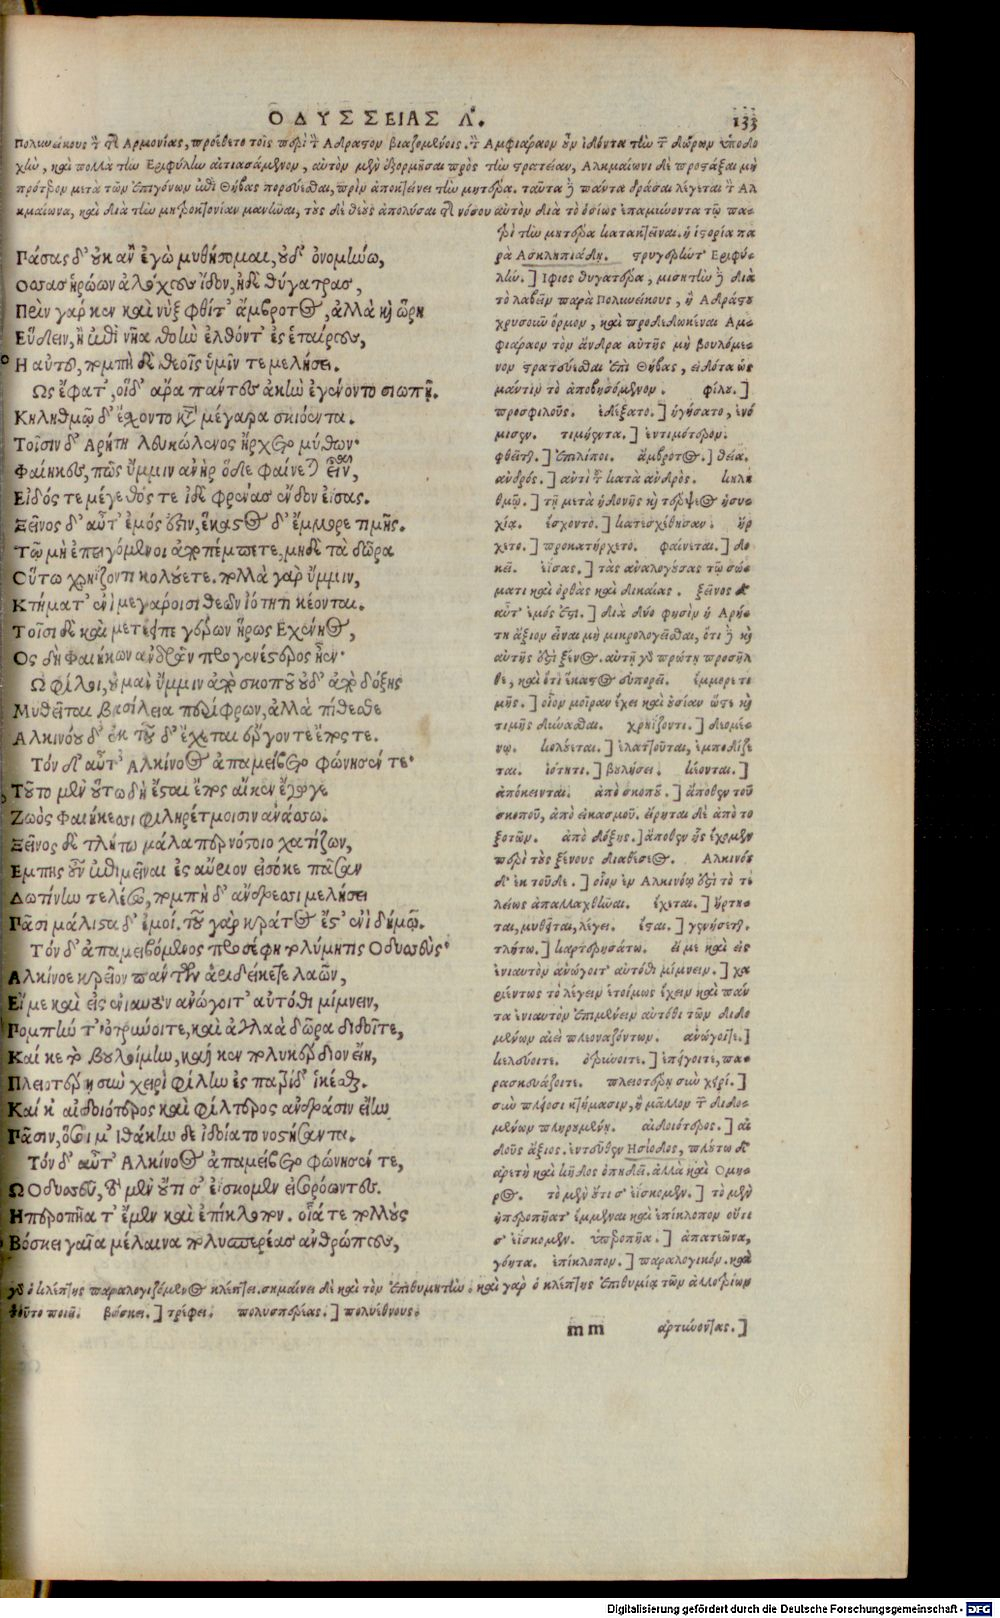 ΟΔΥΣΣΕΙΑΣ Λ. 133
Πολυνείκους τὸν τῆς Ἁρμονίας, προέθετο τοῖς περὶ τὸν Ἄδραστον βιαζομένοις. τὸν Ἀμφιάραον οὖν ἰδόντα τὴν τῶν δώρων ὑποδο
χὴν, καὶ πολλὰ τὴν Ἐριφύλην αἰτιασάμενον, αὐτὸν μὲν ἐξορμῆσαι πρὸς τὴν στρατείαν, Ἀλκμαίωνι δὲ προστάξαι μὴ
πρότερον μετὰ τῶν ἐπιγόνων ἐπὶ Θήβας πορεύεσθαι, πρὶν ἀποκτείνει τὴν μητέρα. ταῦτα δὲ πάντα δρᾶσαι λέγεται τὸν Ἀλ
κμαίωνα, καὶ διὰ τὴν μητροκτονίαν μανῆναι, τοὺς δὲ θεοὺς ἀπολύσαι τῆς νόσου αὐτὸν διὰ τὸ ὁσίως ἐπαμύνοντα τῷ πα-
τρὶ τὴν μητέρα κατακτεῖναι. ἡ ἱστορία πα
Πάσας δ' οὐκ ἂν ἐγὼ μυθήσομαι, οὐδ' ὀνομήνω,
Ὅσσας ἡρώων ἀλόχους ἴδον, ἠδὲ θύγατρας,
Πρὶν γάρ κεν καὶ νὺξ φθῖτ' ἄμβροτος, ἀλλὰ καὶ ὥρη
Εὕδειν, ἢ ἐπὶ νῆα θοὴν ἐλθόντ' ἐς ἑταίρους,
Ἢ αὐτοῦ, πομπὴ δὲ θεοῖς ὑμῖν τε μελήσει.
Ὣς ἔφατ', οἱ δ' ἄρα πάντες ἀκὴν ἐγένοντο σιωπῇ.
Κηληθμῷ δ' ἔσχοντο κατὰ μέγαρα σκιόεντα.
Τοῖσιν δ' Ἀρήτη λευκώλενος ἤρχετο μύθων·
Φαίηκες, πῶς ὔμμιν ἀνὴρ ὅδε φαίνεται εἶναι,
Εἶδός τε μέγεθός τε ἰδὲ φρένας ἔνδον ἐΐσας.
Ξεῖνος δ' αὖτ' ἐμός ἐστιν, ἕκαστος δ' ἔμμορε τιμῆς.
Τῷ μὴ ἐπειγόμενοι ἀποπέμπετε, μηδὲ τὰ δῶρα
Οὕτω χρηίζοντι κολούετε. πολλὰ γὰρ ὔμμιν,
Κτήματ' ἐνὶ μεγάροισι θεῶν ἰότητι κέονται.
Τοῖσι δὲ καὶ μετέειπε γέρων ἥρως Ἐχένηος,
Ὃς δὴ Φαιήκων ἀνδρῶν προγενέστερος ἦεν·
Ὦ φίλοι, οὐ μὰν ὔμμιν ἀπὸ σκοποῦ οὐδ' ἀπὸ δόξης
Μυθεῖται βασίλεια περίφρων, ἀλλὰ πίθεσθε
Ἀλκινόου δ' ἐκ τοῦ δ' ἔχεται ἔργον τε ἔπος τε.
Τὸν δ' αὖτ' Ἀλκίνοος ἀπαμείβετο φώνησέν τε·
Τοῦτο μὲν οὕτω δὴ ἔσται ἔπος αἴ κεν ἔγωγε
Ζωὸς Φαιήκεσσι φιληρέτμοισιν ἀνάσσω.
Ξεῖνος δὲ τλήτω μάλα περ νόστοιο χατίζων,
Ἔμπης οὖν ἐπιμεῖναι ἐς αὔριον εἰσόκε πᾶσαν
Δωτίνην τελέσω, πομπὴ δ' ἄνδρεσσι μελήσει
Πᾶσι μάλιστα δ' ἐμοί. τοῦ γὰρ κράτος ἔστ' ἐνὶ δήμῳ.
Τόν δ' ἀπαμειβόμενος προσέφη πολύμητις Ὀδυσσεύς·
Ἀλκίνοε κρεῖον πάντων ἀριδείκετε λαῶν,
Εἴ με καὶ εἰς ἐνιαυτὸν ἀνώγοιτ' αὐτόθι μίμνειν,
Πομπήν τ' ὀτρύνοιτε, καὶ ἀγλαὰ δῶρα διδοῖτε,
Καί κε τὸ βουλοίμην, καί κεν πολὺ κέρδιον εἴη,
Πλειοτέρῃ σὺν χειρὶ φίλην ἐς πατρίδ' ἱκέσθαι.
Καί κ' αἰδοιότερος καὶ φίλτερος ἀνδράσιν εἴην
Πᾶσιν, ὅσοι μ' Ἰθάκην δε ἰδοίατο νοστήσαντα.
Τὸν δ' αὖτ' Ἀλκίνοος ἀπαμείβετο φώνησέν τε,
Ὦ Ὀδυσσεῦ, τὸ μὲν οὔτι σ' ἐΐσκομεν εἰσορόωντες.
Ἠπεροπῆα τ' ἔμεν καὶ ἐπίκλοπον. οἷά τε πολλοὺς
Βόσκει γαῖα μέλαινα πολυσπερέας ἀνθρώπους,
ρὰ Ἀσκληπιάδῃ. στυγερήντ' Ἐριφύ-
λην.] Ἴφιος θυγατέρα, μισητὴν δὲ διὰ
τὸ λαβεῖν παρὰ Πολυνείκους, ἢ Ἀδράστου
χρυσοῦν ὅρμον, καὶ προδεδωκέναι Ἀμ-
φιάραον τὸν ἄνδρα αὐτῆς μὴ βουλόμε-
νον στρατεύεσθαι ἐπὶ Θήβας, εἰδότα ὡς
μάντιν τὸ ἀποβησόμενον. φίλου.]
προσφιλοῦς. ἐδέξατο.] ἡγήσατο, ἐνό
μισεν. τιμήεντα.] ἐντιμότερον.
φθεῖται.] ἐπιλίποι. ἄμβροτος.] θεία.
ἀνδρός.] αὐτὶ τοῦ κατὰ ἀνδρός. κηλη
θμῷ.] τῇ μετὰ ἡδονῆς καὶ τέρψεος ἡσυ-
χίᾳ. ἔσχοντο.] κατεσχέθησαν. ἤρ
χετο.] προκατήρχετο. φαίνεται.] δο
κεῖ. ἐΐσας.] τὰς ἀναλογούσας τῷ σώ-
ματι καὶ ὀρθὰς καὶ δικαίας. ξεῖνος δ'
αὖτ' ἐμός ἐστι.] διὰ δύο φησὶν ἡ Ἀρή-
τη ἄξιον εἶναι μὴ μικρολογεῖσθαι, ὅτι τε καὶ
αὐτῆς ἐστὶ ξένος. αὐτῇ γὰρ πρώτῃ προσῆλ
θε, καὶ ὅτι ἕκαστος εὐπορεῖ. ἔμμορε τι
μῆς.] οἷον μοῖραν ἔχει καὶ οὐσίαν ὥστε καὶ
τιμῆς δύνασθαι. χρηίζοντι.] δεομέ-
νῳ. κολούεται.] ἐλαττοῦται, ἐμποδίζε
ται. ἰότητι.] βουλήσει. κέονται.]
ἀπόκεινται. ἀπὸ σκοποῦ.] ἄποθεν τοῦ
σκοποῦ, ἀπὸ εἰκασμοῦ. εἴρηται δὲ ἀπὸ το
ξοτῶν. ἀπὸ δόξης.] ἄποθεν ἧς ἔχομεν
περὶ τοὺς ξένους διαθέσεος. Ἀλκινόου
δ' ἐκ τοῦδε.] οἷον ἐν Ἀλκινόῳ ἐστὶ τὸ τε
λείως ἀπαλλαχθῆναι. ἔχεται.] ἤρτη-
ται, μυθεῖται, λέγει. ἔσται.] γενήσεται.
τλήτω.] καρτερησάτω. εἴ με καὶ εἰς
ἐνιαυτὸν ἀνώγοιτ' αὐτόθι μίμνειν.] χα
ριέντως τὸ λέγειν ἑτοίμως ἔχειν καὶ πάν
τα ἐνιαυτὸν ἐπιμένειν αὐτόθι τῶν διδο
μένων αἰεὶ πλεοναζόντων. ἀνώγοιτε.]
κελεύοιτε. ὀτρύνοιτε.] ἐπείγοιτε, πα-
ρασκευάζοιτε. πλειοτέρῃ σὺν χειρί.]
σὺν πλέοσι κτήμασιν, ἢ μᾶλλον τῶν διδο-
μένων πληρουμένῃ. αἰδοιότερος.] αἰ
δοῦς ἄξιος. ἐντεῦθεν Ἡσίοδος, πλούτῳ δ'
ἀρετὴ καὶ κῦδος ὀπηδεῖ. ἀλλὰ καὶ Ὅμη-
ρος. τὸ μὲν οὔτι σ' ἐΐσκομεν.] τὸ μὲν
ἠπεροπῆατ' ἔμμεναι καὶ ἐπίκλοπον οὔτι
σ' ἐΐσκομεν. ὑπεροπῆα.] ἀπατεῶνα,
γόητα. ἐπίκλοπον.] παραλογικόν. καὶ
γὰρ ὁ κλέπτης παραλογιζόμενος κλέπτει. σημαίνει δὲ καὶ τὸν ἐπιθυμητήν. καὶ γὰρ ὁ κλέπτης ἐπιθυμίᾳ τῶν ἀλλοτρίων
τοῦτο ποιεῖ. βόσκει.] τρέφει. πολυσπερέας.] πολυεθνους.
mm ἀρτύνοντας.]
Digitalisierung gefördert durch die Deutsche Forschungsgemeinschaft - DFG